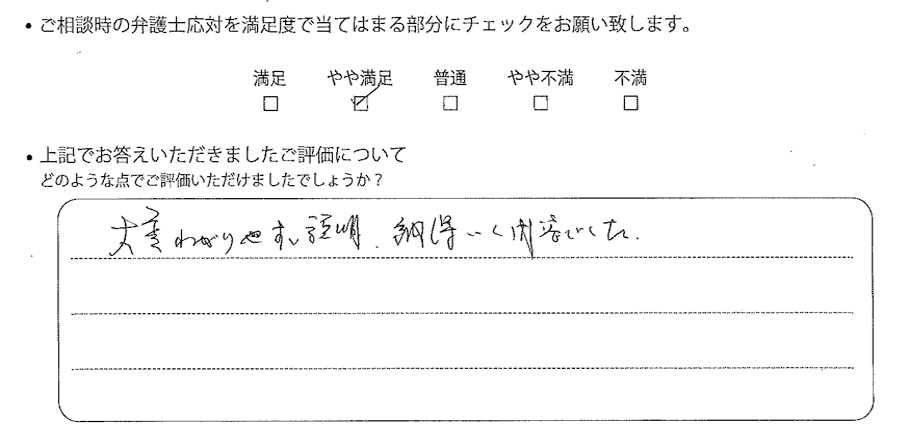 ・ご相談時の弁護士応対を満足度で当てはまる部分にチェックをお願い致します。
満足 やや満足 普通 やや不満 不満
□ ☑ □ □ □
・上記でお答えいただきましたご評価について
どのような点でご評価いただけましたでしょうか？
大変わかりやすい説明、納得いく内容でした。